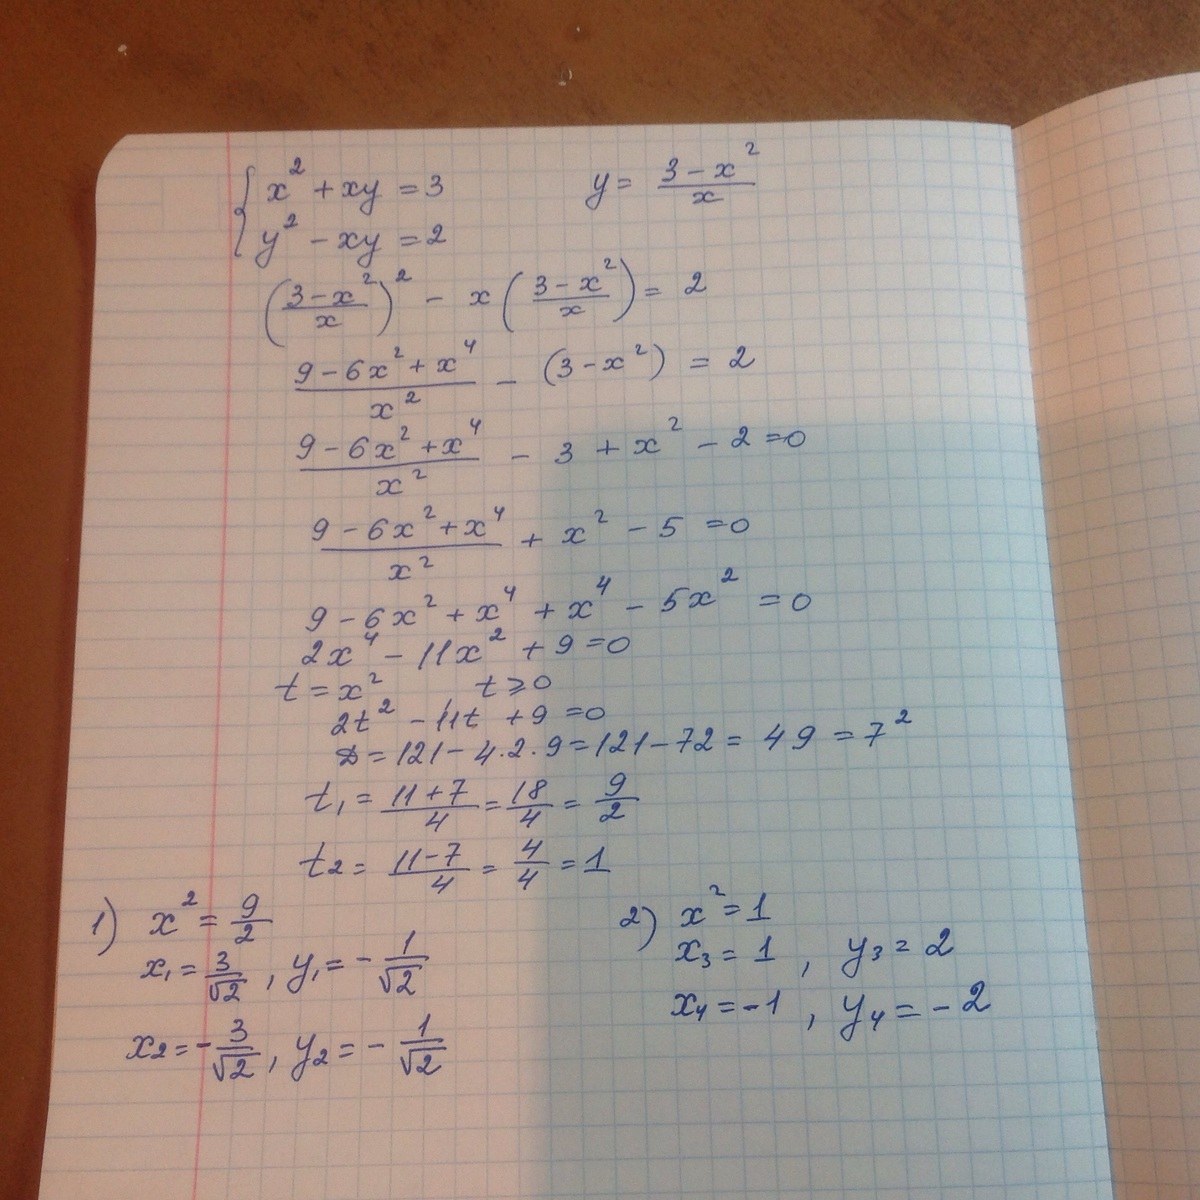 { x² + xy = 3        y = (3 - x²)/x
{ y² - xy = 2
((3 - x²)/x)² - x((3 - x²)/x) = 2
(9 - 6x² + x⁴)/x² - (3 - x²) = 2
(9 - 6x² + x⁴)/x² - 3 + x² - 2 = 0
(9 - 6x² + x⁴)/x² + x² - 5 = 0
9 - 6x² + x⁴ + x⁴ - 5x² = 0
2x⁴ - 11x² + 9 = 0
t = x²        t ⩾ 0
2t² - 11t + 9 = 0
D = 121 - 4·2·9 = 121 - 72 = 49 = 7²
t₁ = (11 + 7)/4 = 18/4 = 9/2
t₂ = (11 - 7)/4 = 4/4 = 1
1) x² = 9/2
x₁ = 3/√2, y₁ = - 1/√2
x₂ = - 3/√2, y₂ = - 1/√2
2) x² = 1
x₃ = 1, y₃ = 2
x₄ = -1, y₄ = -2